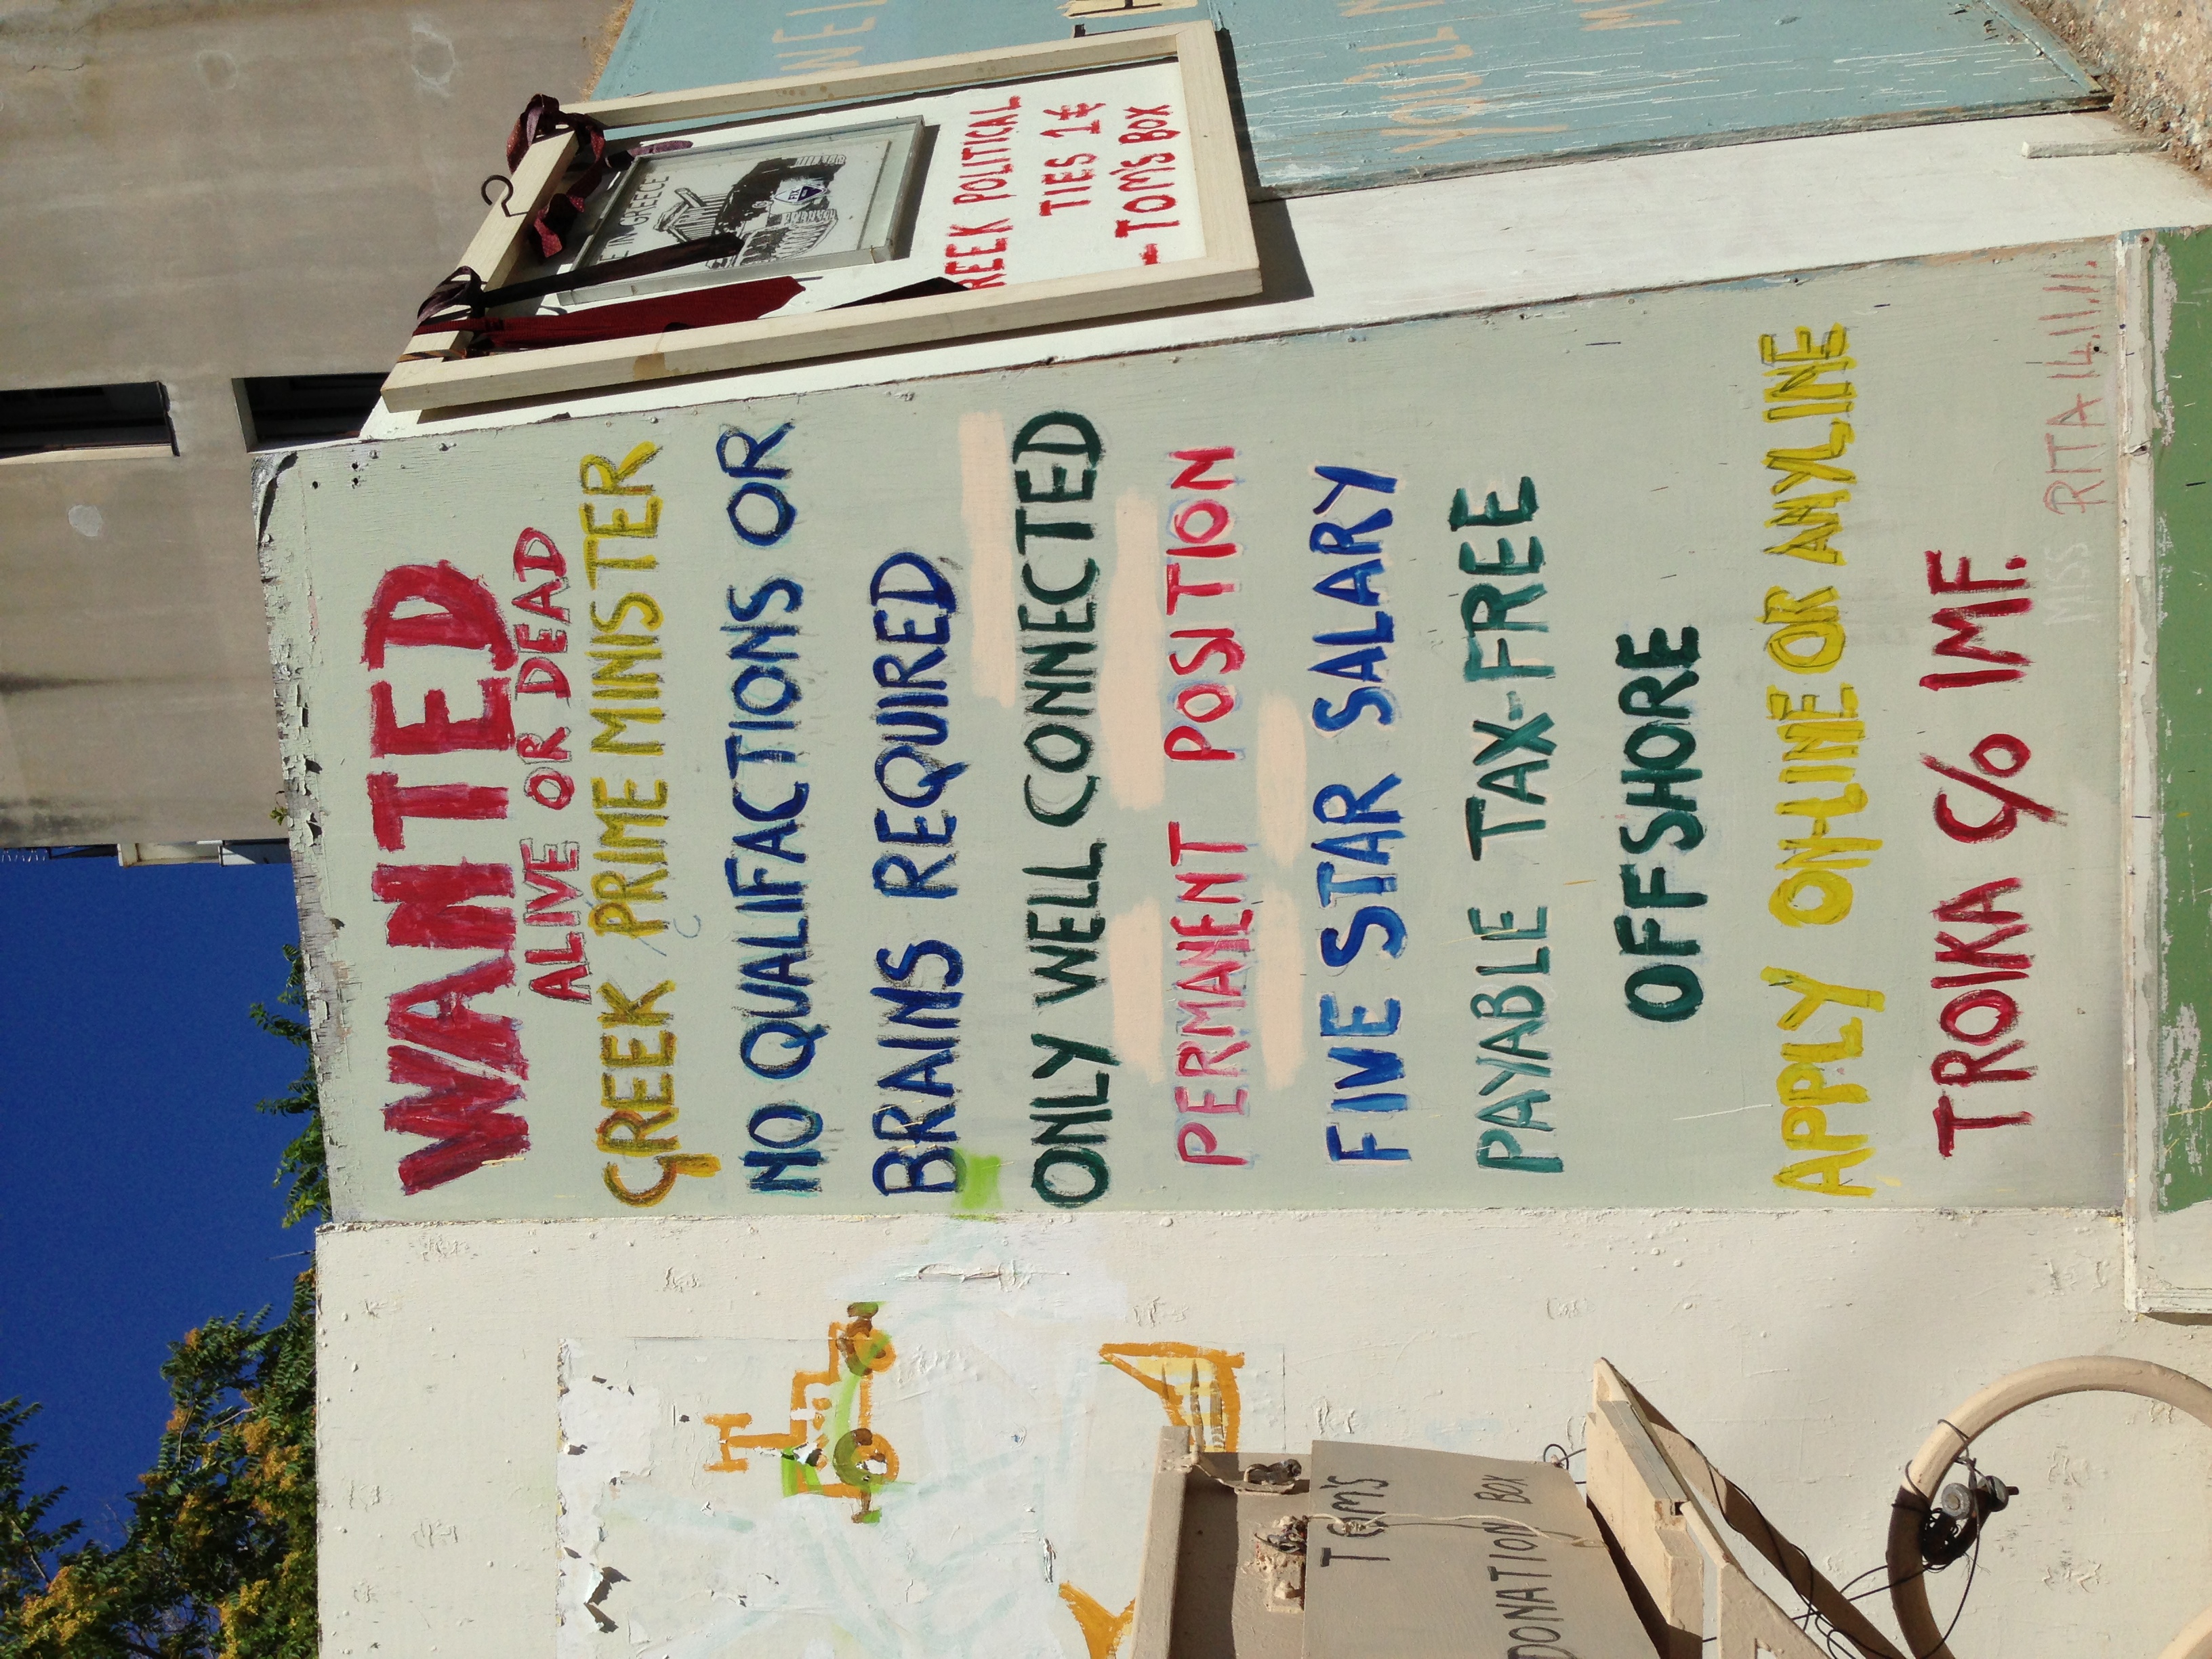 WANTED
ALIVE OR DEAD
GREEK PRIME MINISTER
NO QUALIFACTIONS OR
BRAINS REQUIRED
ONLY WELL CONNECTED
PERMANENT POSITION
FIVE STAR SALARY
PAYABLE TAX-FREE
OFFSHORE
APPLY ON-LINE OR ANYLINE
TROIKA C/O IMF.
MISS RITA 14.11.11.
IN GREECE
REEK POLITICAL
TIES 1€
- TOM'S BOX
WEL
YOU'LL
TOM'S
DONATION BOX